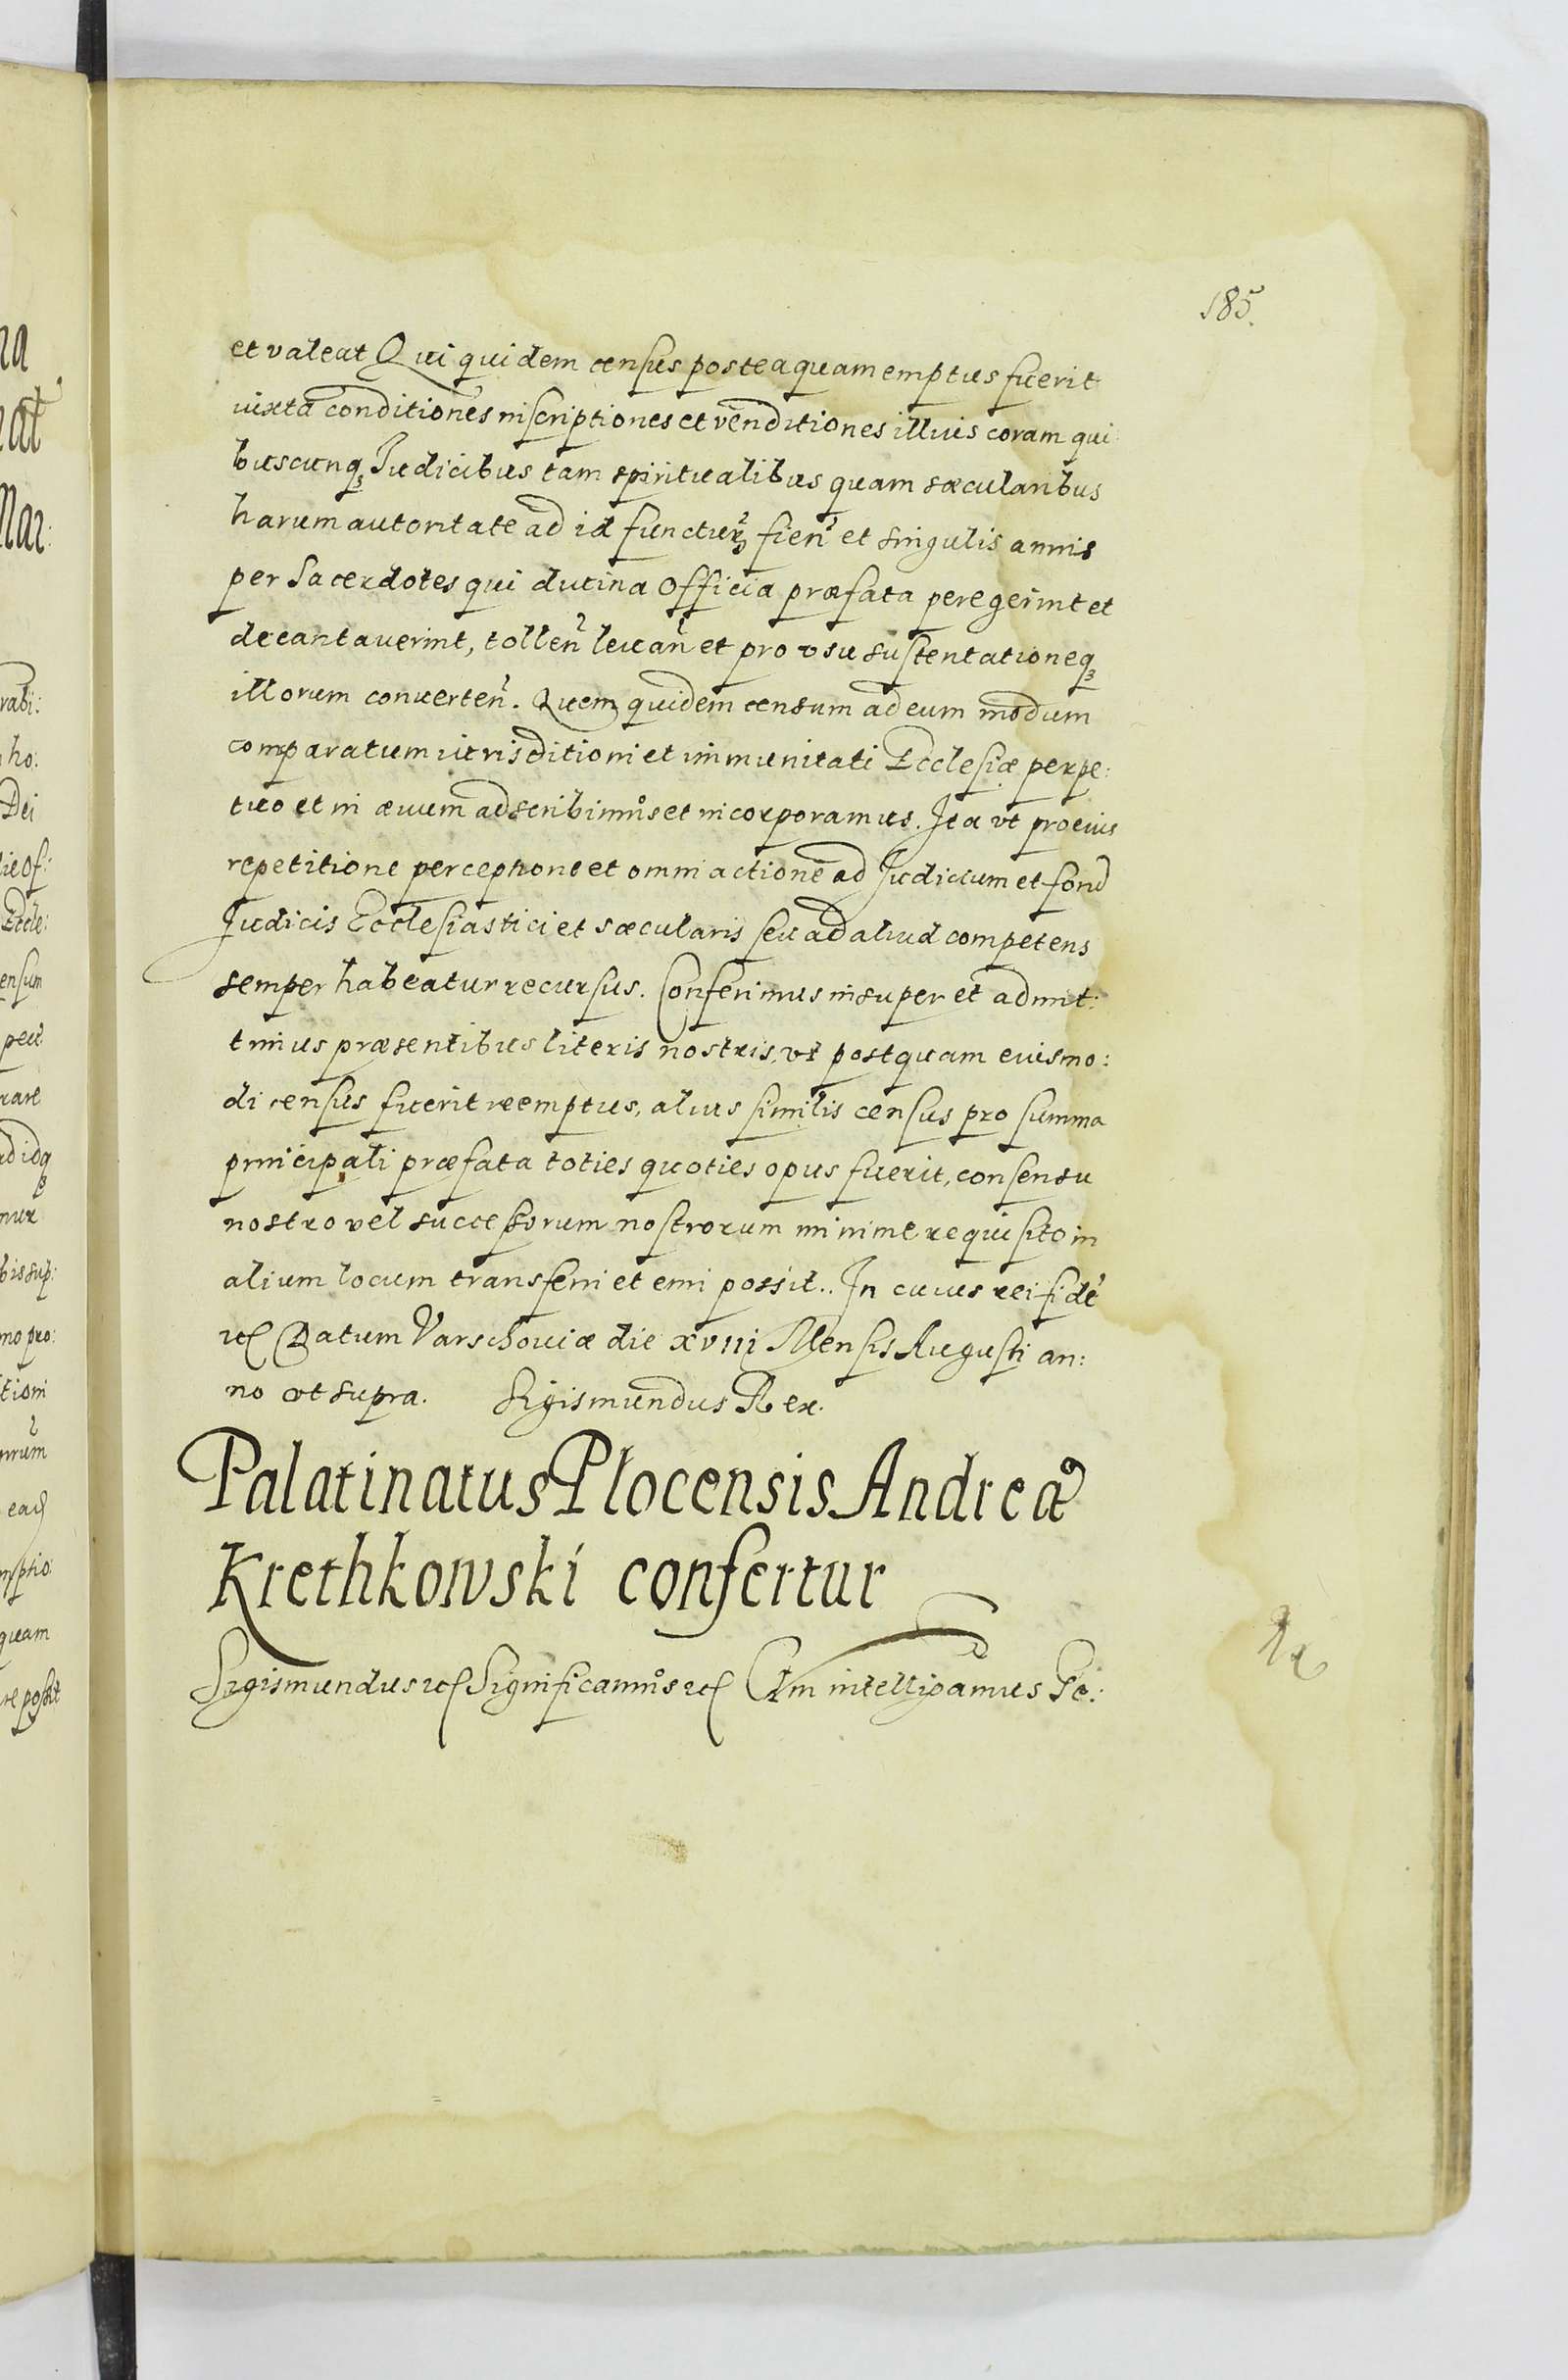 185.
et valeat Qui quidem census posteaquam emptus fuerit
iuxta conditiones inscriptiones et venditiones illius coram qui
buscunq₃ Iudicibus tam spiritualibus quam sæcularibus
harum autoritate ad id functur₃ fien̄ et singulis annis
per Sacerdotes qui diuina Officia præfata peregerint et
decantauerint, tollen̄ leuan̄ et pro vsu sustentationeq₃
illorum conuerten̄. Quem quidem censum ad eum modum
comparatum iurisditioni et immunitati Ecclesiæ perpe:
tuo et in æuum adscribimus et incorporamus. Ita vt pro eius
repetitione perceptione et omni actione ad Iudicium et forū
Iudicis Ecclesiastici et sæcularis seu ad aliud competens
semper habeatur recursus. Conferimus insuper et admit:
timus præsentibus literis nostris, vt postquam euismo:
di census fuerit reemptus, alius similis census pro summa
principali præfata toties quoties opus fuerit, consensu
nostro vel successorum nostrorum minime requisito in
alium locum transferri et emi possit.. In cuius rei fidē
etc Datum Varschouiæ die xviii Mensis Augusti an:
no vt supra. Sigismundus Rex.
Palatinatus Plocensis Andreæ
Krethkowski confertur
Sigismundus etc Significamus etc Cum intelligamus Pe: